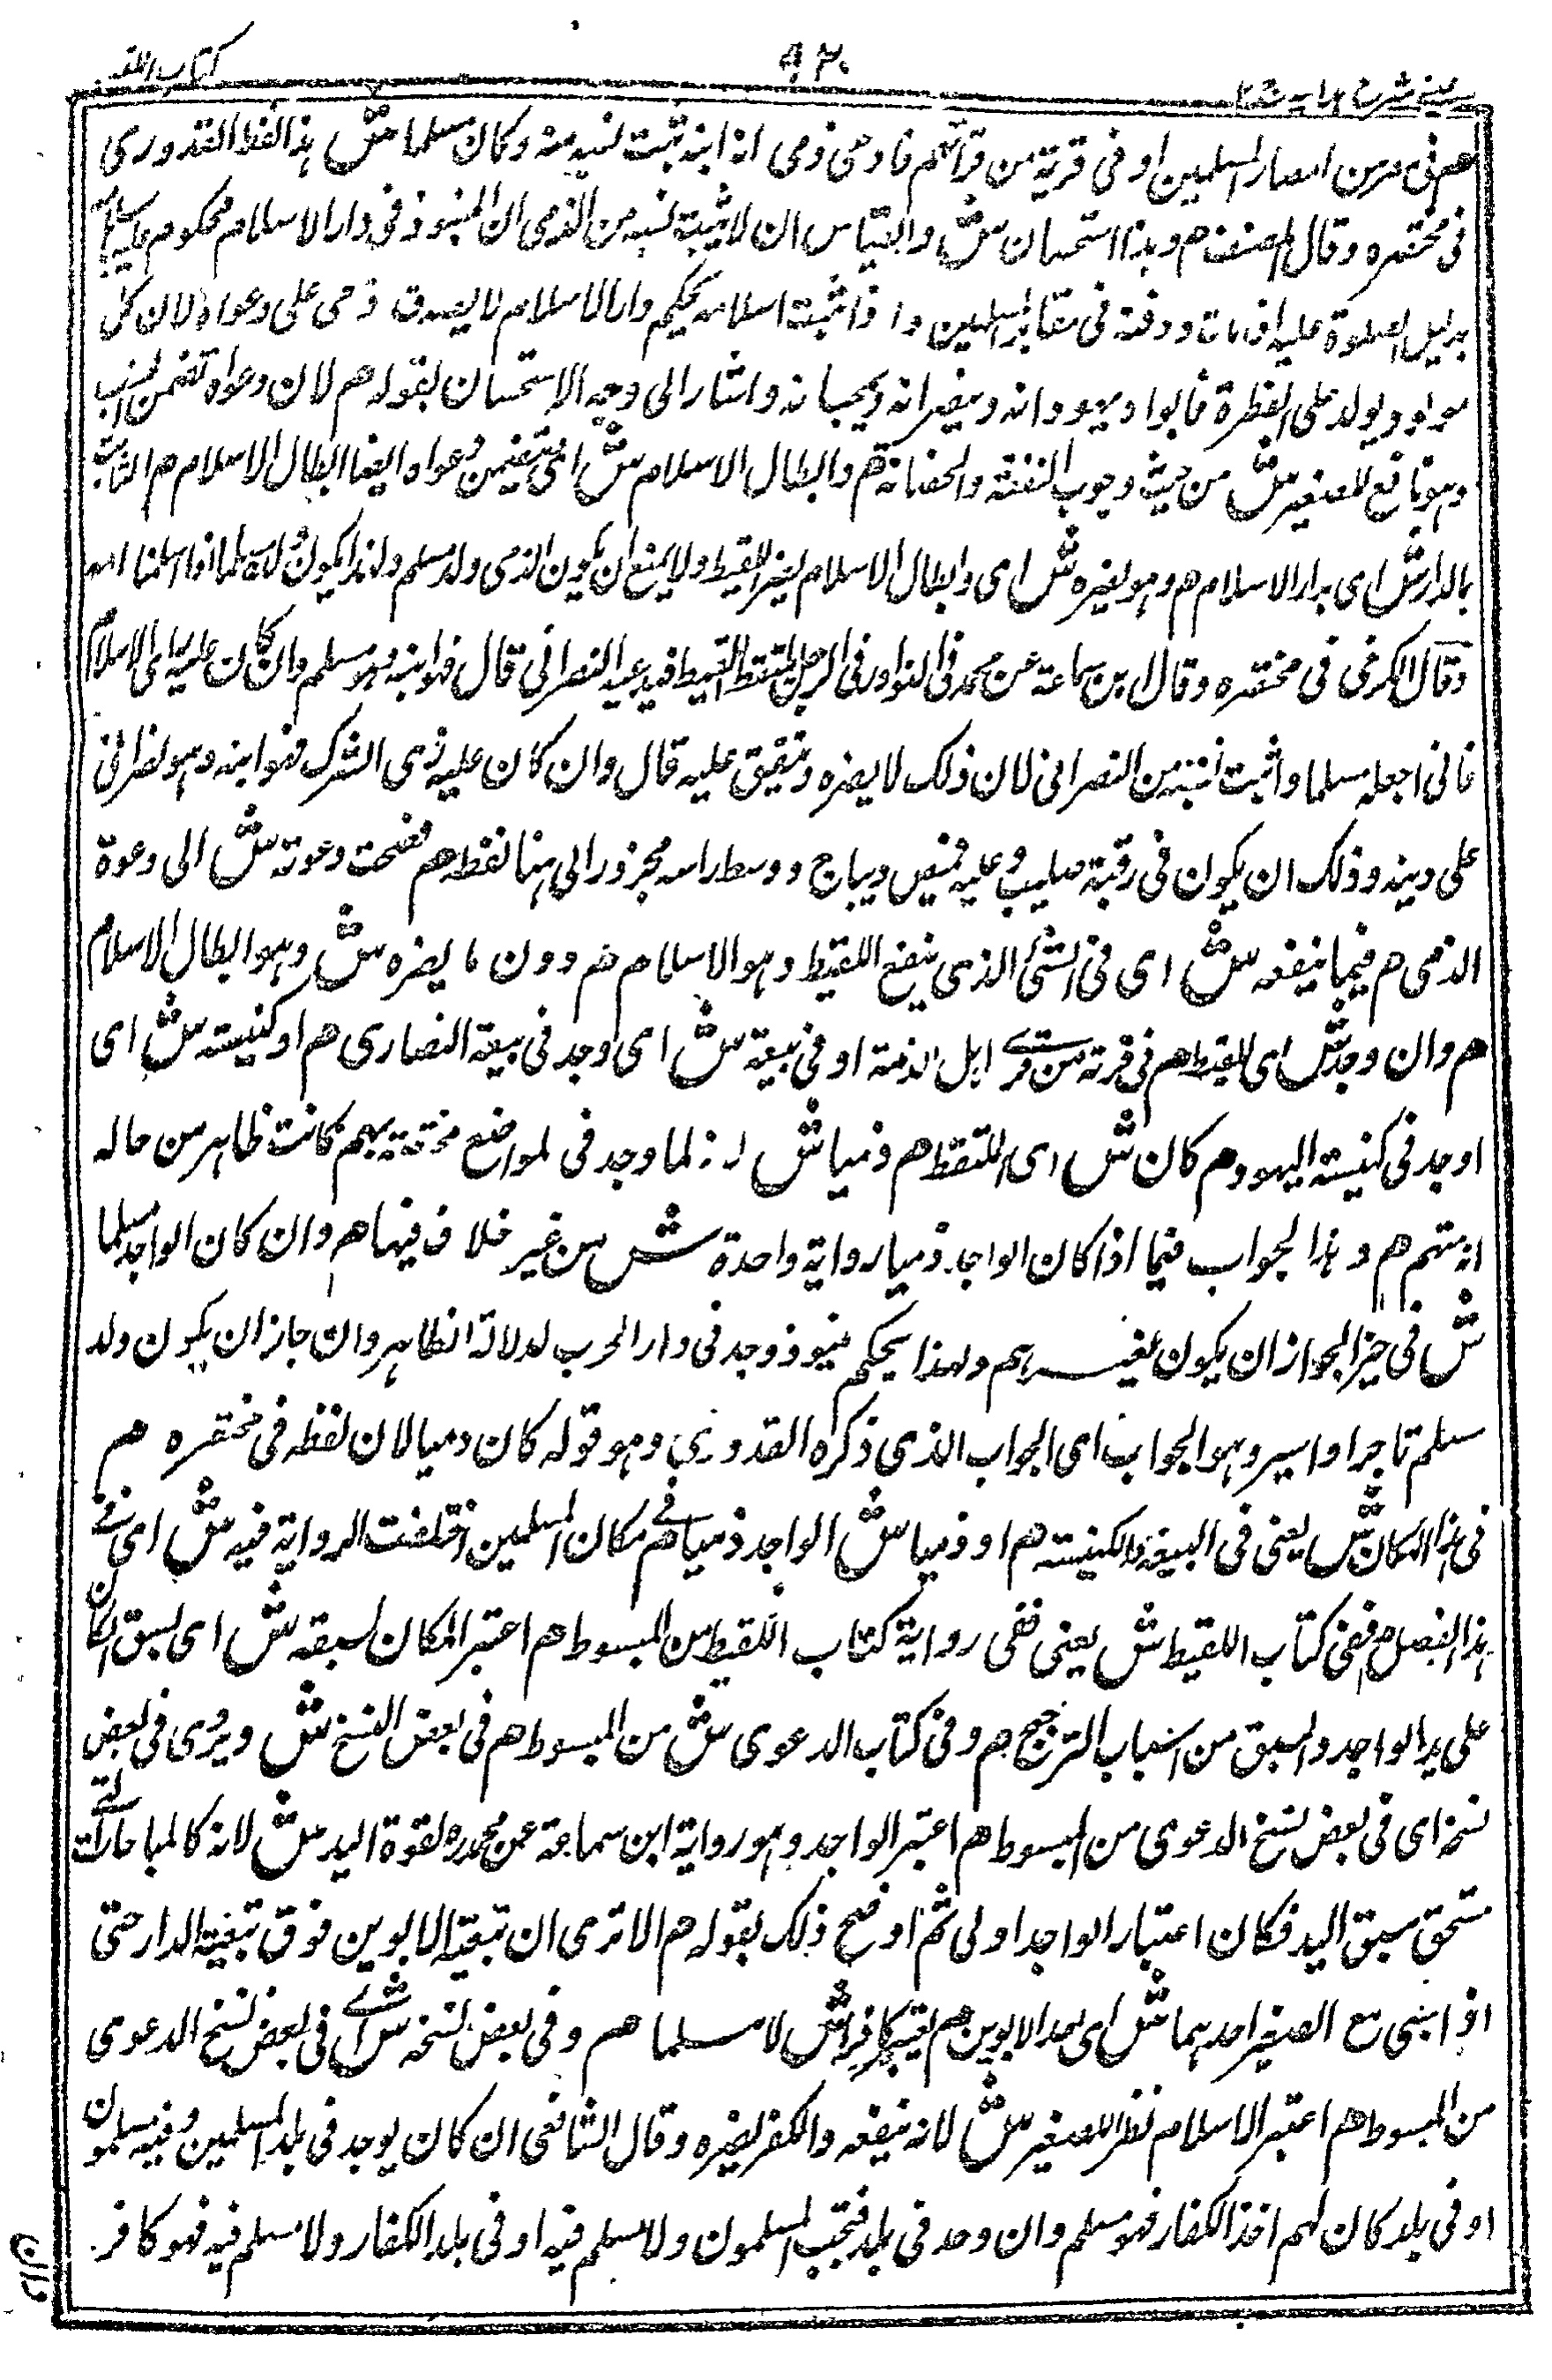 عینی شرح ہدایہ ج ٢ ٩٢٠ کتاب اللقیط
ھم فی مصر من امصار المسلمین او فی قریة من قراٸھم فادعی ذمی انه ابنه ثبت نسبه منه وکان مسلما ش ہذا لفظ القدوری
فی مختصره وقال المصنف م وہذا استحسان ش والقیاس ان لا یثبت نسبه من الذمی ان المنبوذ فی دار الاسلام محکوم علیه باسلام
بدلیل الصلوة علیه اذا مات ودفنه فی مقابر المسلمین واذا ثبت اسلامه بحکم دار الاسلام لا یصدق ذمی علی دعواه لان کل
مولود یولد علی الفطرة فابواه یہودانه وینصرانه ویمجسانه واشار الی وجه الاستحسان بقوله ھم لان دعواه تضمن النسب
وہو نافع للصغیر ش من حیث وجوب النفقة والحضانة ھم وابطال الاسلام ش ای یتضمن دعواه ایضا ابطال الاسلام م الثابت
بالدار ش ای بدار الاسلام ھم وہو یضره ش ای وابطال الاسلام یضر اللقیط ولا یمنع ان یکون الذمی ولد مسلم ولہذا یکون ولده مسلما اذا اسلمت امه
وقال الکرخی فی مختصره وقال ابن سماعة عن محمد فی النوادر فی الرجل یلتقط اللقیط فیدعیه النصرانی قال فہو ابنه وہو مسلم وان کان علیه زی الاسلام
فانی اجعله مسلما واثبت نسبه من النصرانی لان ذلک لا یضره وینفق علیه قال وان کان علیه زی الشرک فہو ابنه وہو نصرانی
علی دینه وذلک ان یکون فی رقبته صلیب وعلیه قمیص دیباج ووسط راسه مجزوز الی ہنا لفظه ھم فصحت دعوته ش الی دعوة
الذمی م فیما ینفعه ش ای فی الشئ الذی ینفع اللقیط وہو الاسلام ھم دون ما یضره ش وہو ابطال الاسلام
ھم وان وجد ش ای اللقیط ھم فی قریة من قرے اہل الذمة او فی بیعة ش ای وجد فی بیعة النصاری ھم او کنیسته ش ای
او جد فی کنیسته الیہود م کان ش ای الملتقط ھم ذمیا ش لانه لما وجد فی لمواضع مختصة بہم کانت ظاہر من حاله
انه منہم ھم وہذا لجواب فیما اذا کان الواجد ذمیا روایة واحدة ش من غیر خلاف فیہا ھم وان کان الواجد مسلما
ش فی حیز الجواز ان یکون لغیرہم ولہذا یحکم منبوذ وجد فی دار الحرب لدلالة الظاہر وان جاز ان یکون ولد
مسلم تاجر او اسیر وہو الجواب ای الجواب الذی ذکره القدوری وہو قوله کان ذمیا لان لفظه فی مختصره ھم
فی ہذا المکان ش یعنی فی البیعة والکنیسته ھم او ذمیا ش الواجد ذمیا ھم فے مکان المسلمین اختلفت الروایة فیه ش ای فے
ہذا الفصل م ففی کتاب اللقیط ش یعنی ففی روایة کتاب اللقیط من المبسوط ھم اعتبر المکان لسبقه ش ای لسبق المکان
علی ید الواجد والسبق من اسباب الترجیح ھم وفی کتاب الدعوی ش من المبسوط ھم فی بعض النسخ ش ویروی فی بعض
نسخه ای فی بعض نسخ الدعوی من المبسوط ھم اعتبر الواجد وہو روایة ابن سماعة عن محمد ره لقوة الید ش لانه کالمباحات التے
تستحق بسبق الید فکان اعتبار الواجد اولی ثم اوضح ذلک بقوله ھم الا تری ان تبعیة الابوین فوق تبعیة الدار حتی
اذا سبی مع الصغیر احدہما ش ای احد الابوین ھم یعتبر کافرا ش لا مسلما ھم وفی بعض نسخه ش اے فی بعض نسخ الدعوی
من المبسوط ھم اعتبر الاسلام نظرا للصغیر ش لانه ینفعه والکفر یضره وقال الشافعی ان کان یوجد فی بلد المسلمین وفیه مسلمون
او فی بلد کان لہم اخذ الکفار فہو مسلم وان وجد فی بلد فتحه المسلمون ولا مسلم فیه او فی بلد الکفار ولا مسلم فیه فہو کافر
وان